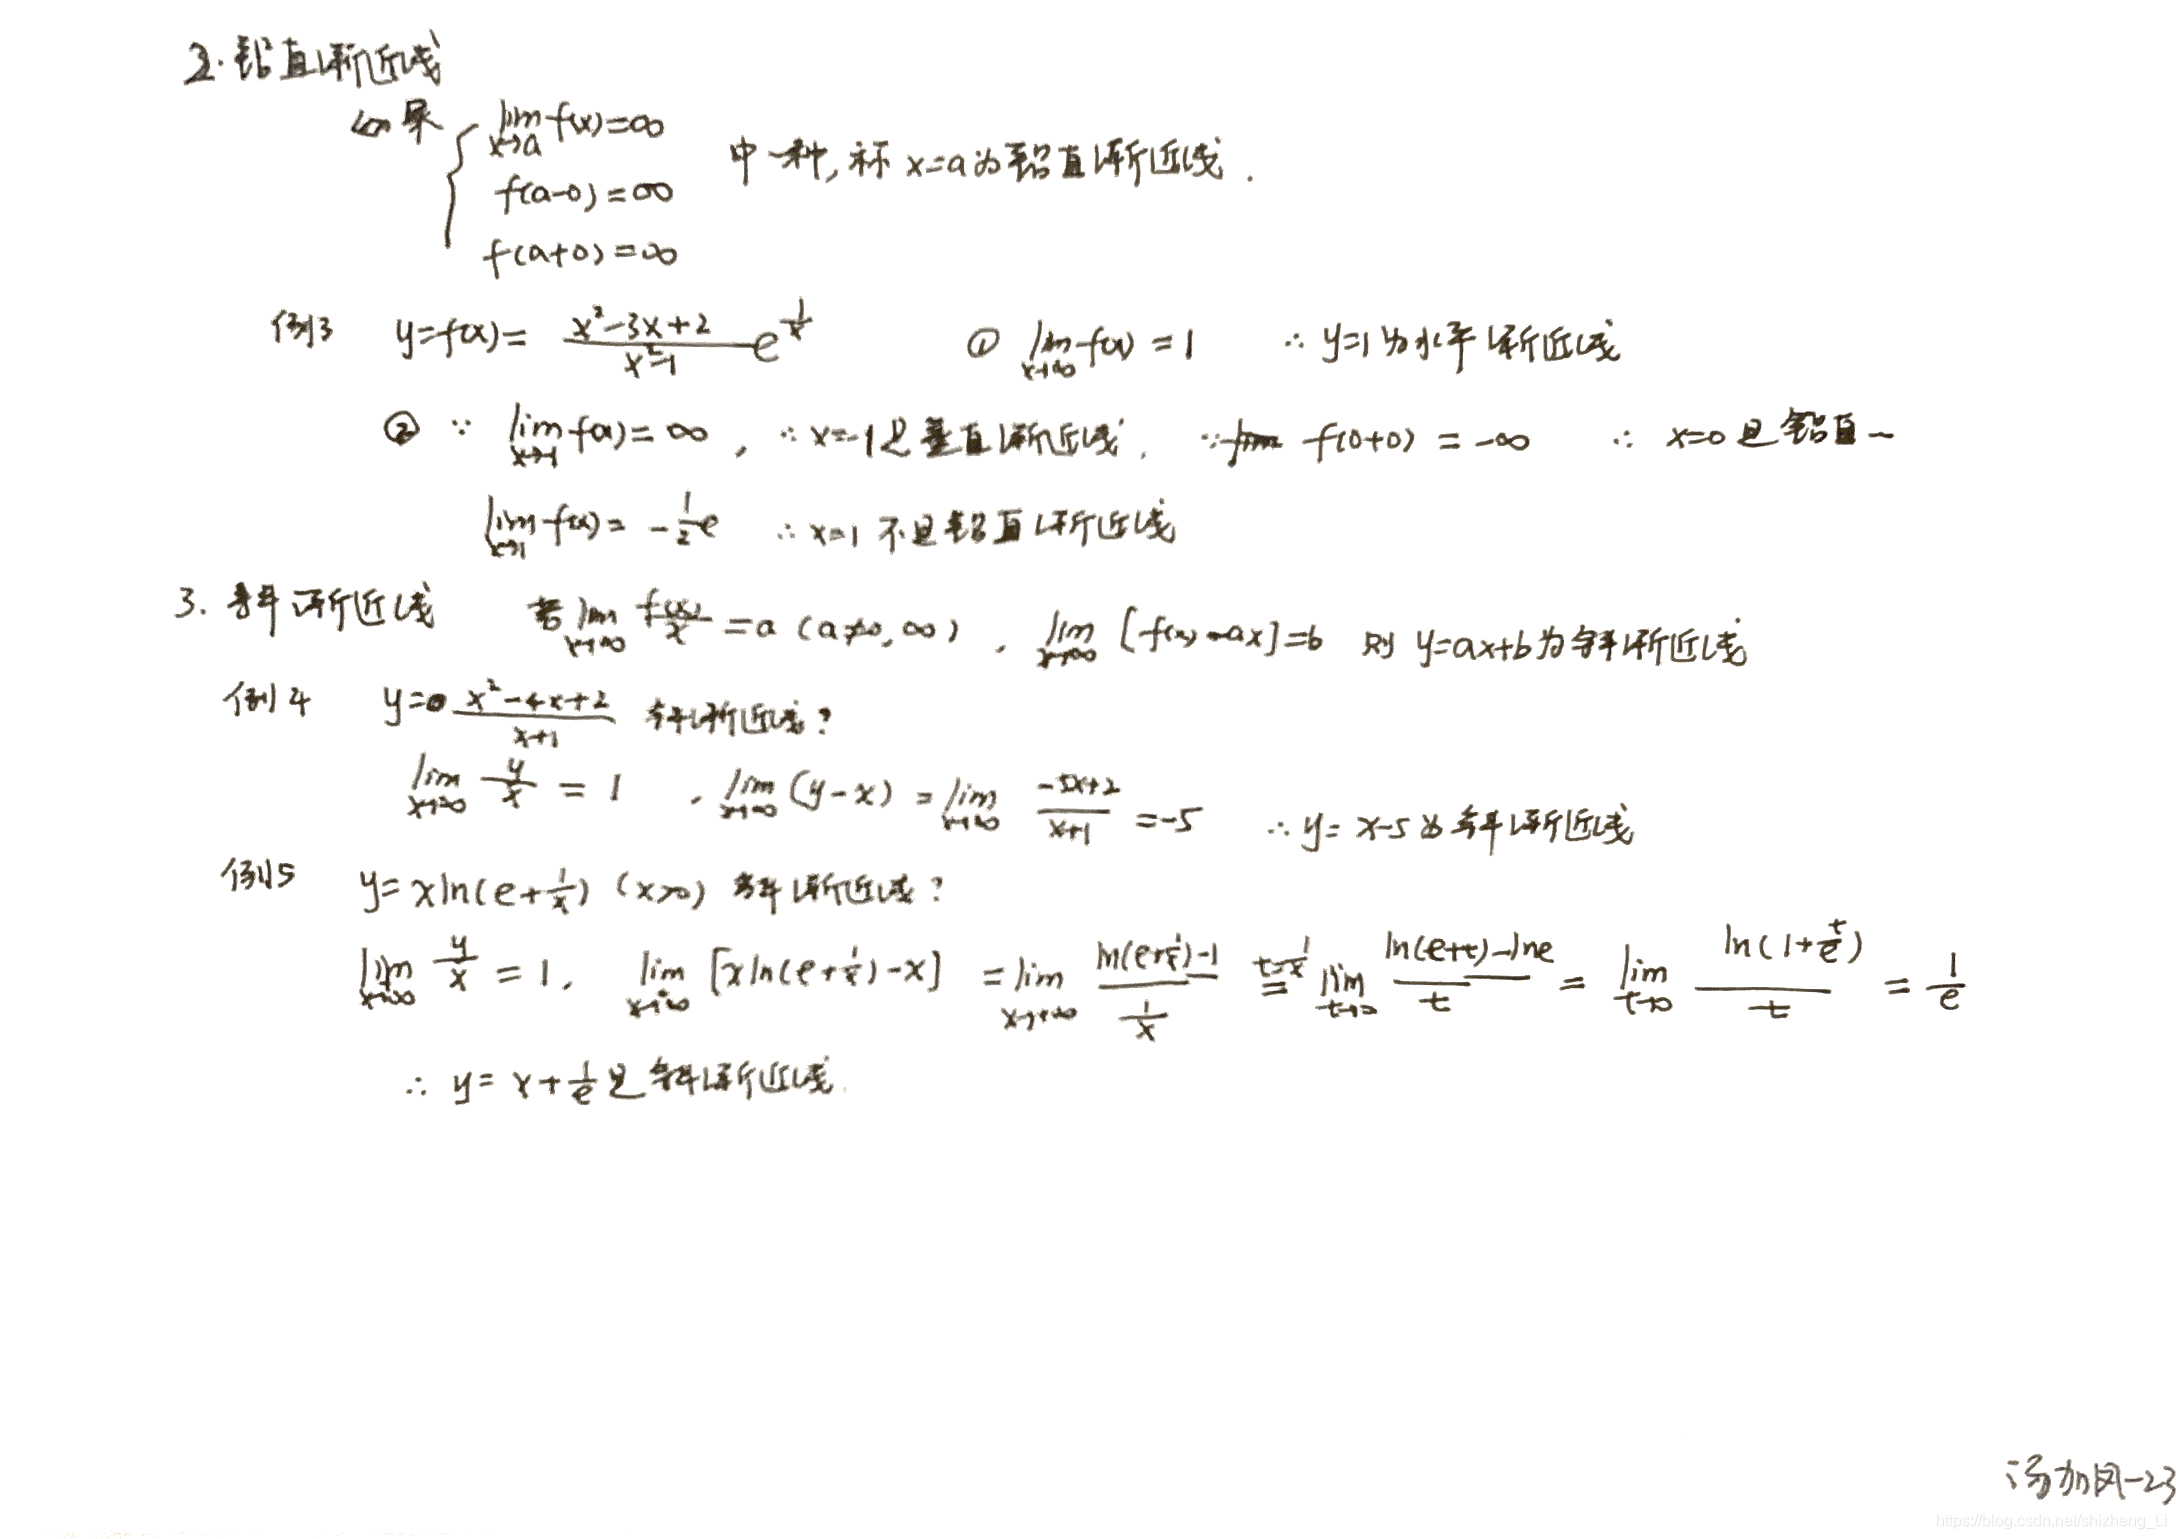 2. 铅直渐近线
如果 { lim_{x→a} f(x)=∞
f(a-0)=∞ 中一种, 称 x=a 为铅直渐近线.
f(a+0)=∞
例3 y=f(x)= \frac{x²-3x+2}{x²-1} e^{\frac{1}{x}} ① lim_{x→∞} f(x) = 1 ∴ y=1 为水平渐近线
② ∵ lim_{x→-1} f(x)= ∞, ∴ x=-1是垂直渐近线. ∵ f(0+0) = -∞ ∴ x=0 是铅直~
lim_{x→1} f(x)= -\frac{1}{2}e ∴ x=1 不是铅直渐近线
3. 斜渐近线 若 lim_{x→∞} \frac{f(x)}{x} = a (a≠0, ∞), lim_{x→∞} [f(x)-ax]=b 则 y=ax+b为斜渐近线
例4 y= \frac{x²-4x+2}{x+1} 斜渐近线?
lim_{x→∞} \frac{y}{x} = 1, lim_{x→∞} (y-x) = lim_{x→∞} \frac{-5x+2}{x+1} =-5 ∴ y= x-5 为斜渐近线
例5 y= x ln(e+\frac{1}{x}) (x>0) 斜渐近线?
lim_{x→∞} \frac{y}{x} = 1, lim_{x→∞} [x ln(e+\frac{1}{x})-x] = lim_{x→+∞} \frac{ln(e+\frac{1}{x})-1}{\frac{1}{x}} \overset{t=\frac{1}{x}}{=} lim_{t→0} \frac{ln(e+t)-lne}{t} = lim_{t→0} \frac{ln(1+\frac{t}{e})}{t} = \frac{1}{e}
∴ y= x+\frac{1}{e} 是斜渐近线
汤加凤-23
https://blog.csdn.net/shizheng_Li